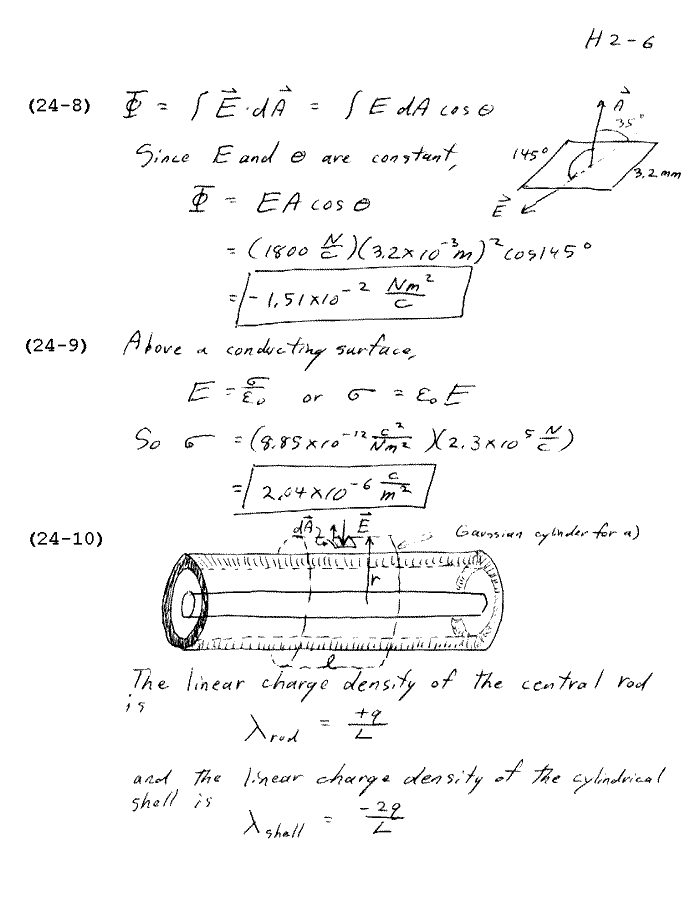 H2-6
(24-8) Φ = ∫ E⃗ · dA⃗ = ∫ E dA cos θ
A⃗
35°
145°
3.2 mm
E⃗
Since E and θ are constant,
Φ = EA cos θ
= (1800 N/C)(3.2×10⁻³m)² cos145°
= -1.51×10⁻² Nm²/C
(24-9) Above a conducting surface,
E = σ/ε₀ or σ = ε₀E
So σ = (8.85×10⁻¹² C²/Nm²)(2.3×10⁵ N/C)
= 2.04×10⁻⁶ C/m²
(24-10)
dA⃗ E⃗ Gaussian cylinder for a)
r
l
The linear charge density of the central rod
is
λrod = +q/L
and the linear charge density of the cylindrical
shell is
λshell = -2q/L